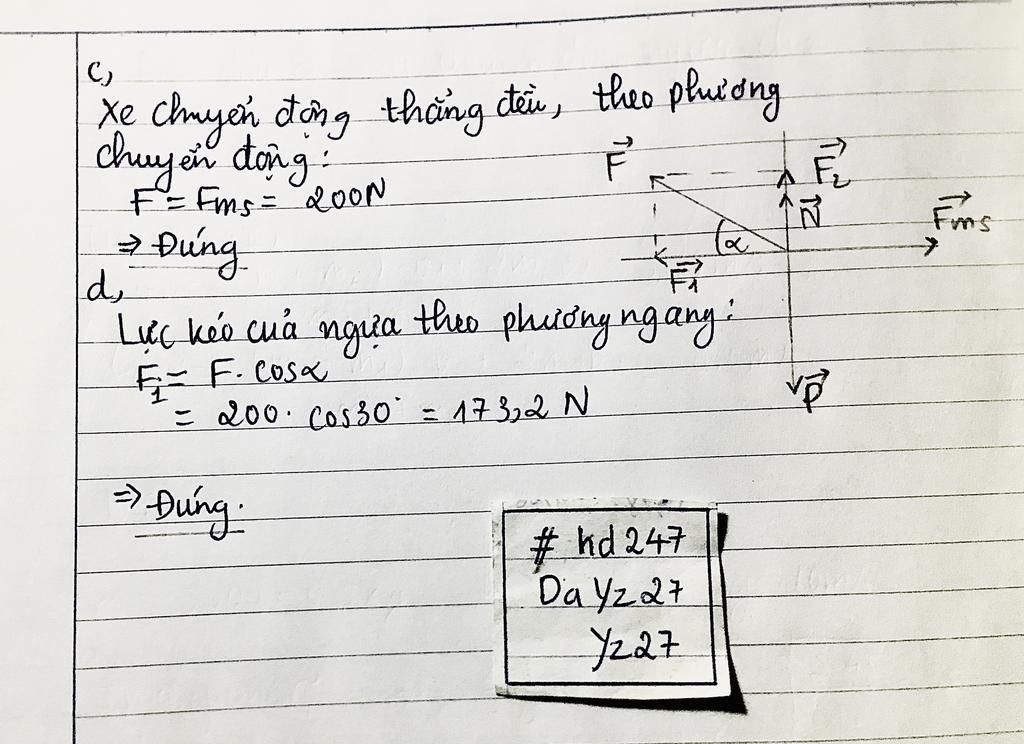 c,
Xe chuyển động thẳng đều, theo phương
chuyển động:
F = Fms = 200N
⇒ Đúng
d,
Lực kéo của ngựa theo phương ngang:
F₁ = F. cosα
= 200. cos30° = 173,2 N
⇒ Đúng.
F⃗
F⃗₂
N⃗
F⃗ms
α
F⃗₁
P⃗
# kd247
Da Yz27
Yz27